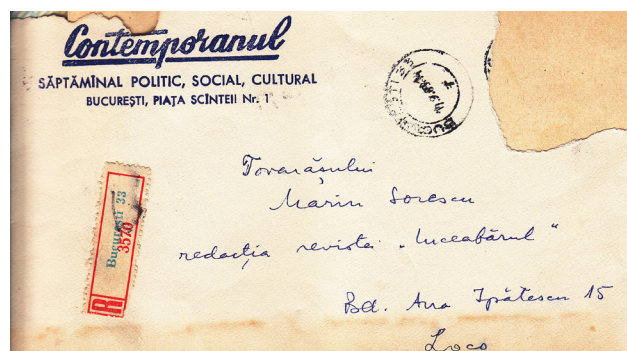 Contemporanul
SĂPTĂMÎNAL POLITIC, SOCIAL, CULTURAL
BUCUREȘTI, PIAȚA SCÎNTEII Nr. 1
BUCUREȘTI
București 33
3570
R
Tovarășului
Marin Sorescu
redacția revistei „Luceafărul"
Bd. Ana Ipătescu 15
Loco